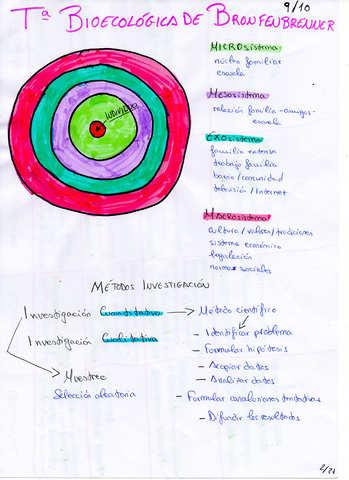 Tª BIOECOLÓGICA DE BRONFENBRENNER
9/10
INDIVIDUO
MICROsistema
núcleo familiar
escuela
Mesosistema
relación familia-amigos-
escuela
EXOsistema
familia extensa
trabajo familia
barrio/comunidad
televisión/Internet
MACROsistema
cultura/valores/tradiciones
sistema económico
legislación
normas sociales
MÉTODOS INVESTIGACIÓN
Investigación Cuantitativa → Método científico
Investigación Cualitativa
- Identificar problema
- Formular hipótesis
- Acopiar datos
- Analizar datos
- Formular conclusiones tentativas
- Difundir los resultados
Muestreo
Selección aleatoria
2/21